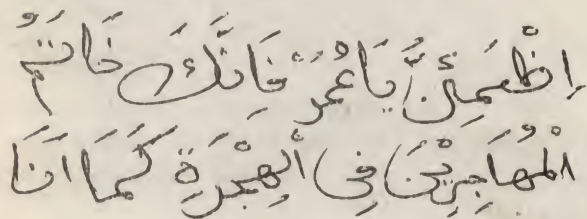 اِطْمَئِنَّ يَا عُمَرَ فَاِنَّكَ خَاتَمُ
الْمُهَاجِرِيْنَ فِى الْهِجْرَةِ كَمَا اَنَا